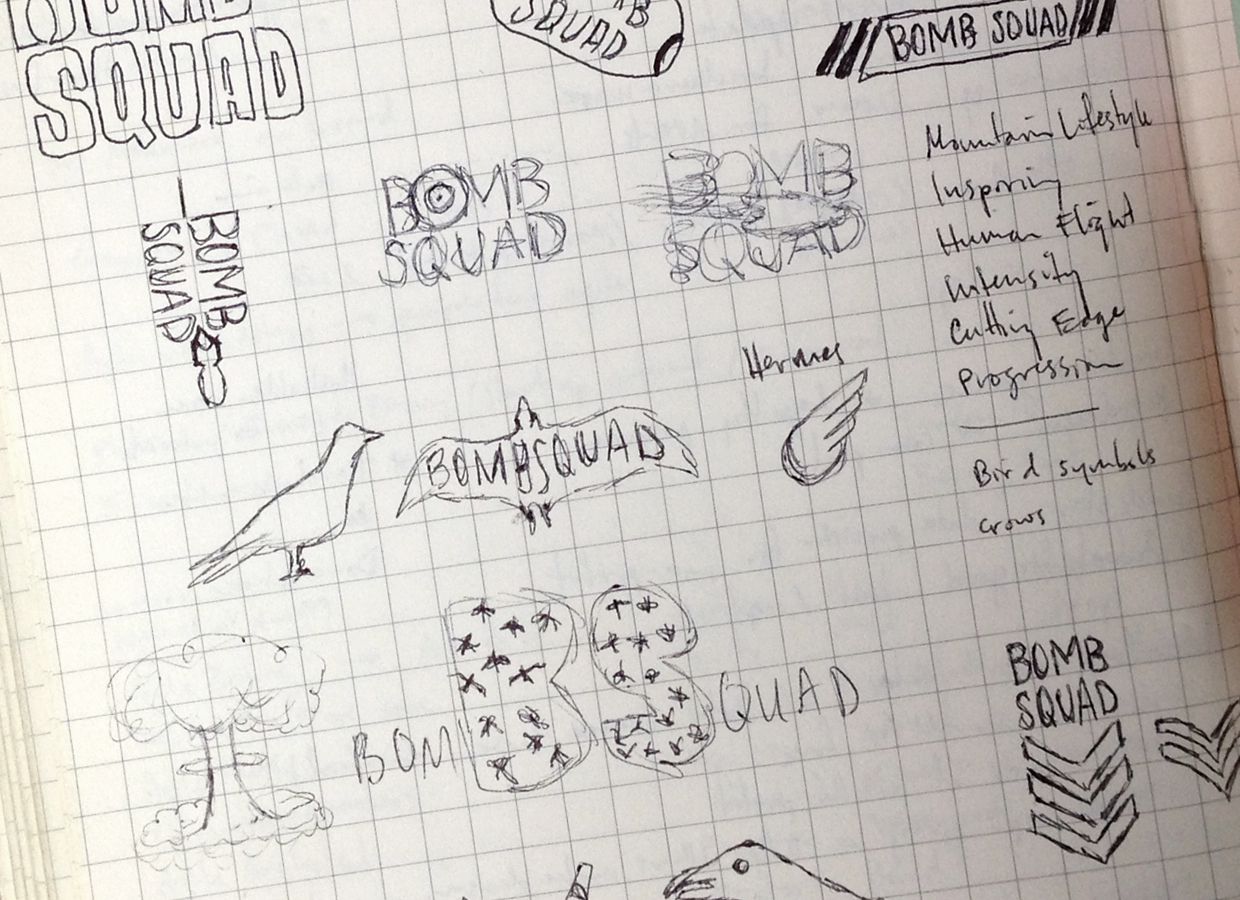 BOMB
SQUAD
SQUAD
BOMB SQUAD
BOMB
SQUAD
BOMB
SQUAD
BOMB
SQUAD
Mountain Lifestyle
Inspiring
Human Flight
Intensity
Cutting Edge
Progression
Hermes
BOMBSQUAD
Bird symbols
crows
BOMB SQUAD
BOMB
SQUAD